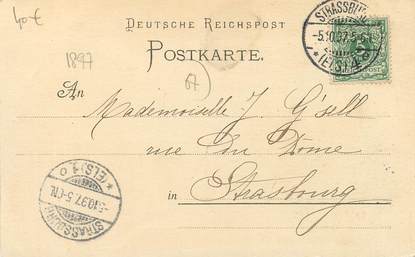 40€
DEUTSCHE REICHSPOST
POSTKARTE.
1897
67
An
Mademoiselle J. G'sell
rue du Dome
in Strasbourg
STRASSBURG
5.10.97.5-6N.
* (ELS) 1 *
STRASSBURG
5.10.97.5-6N.
* (ELS) 1